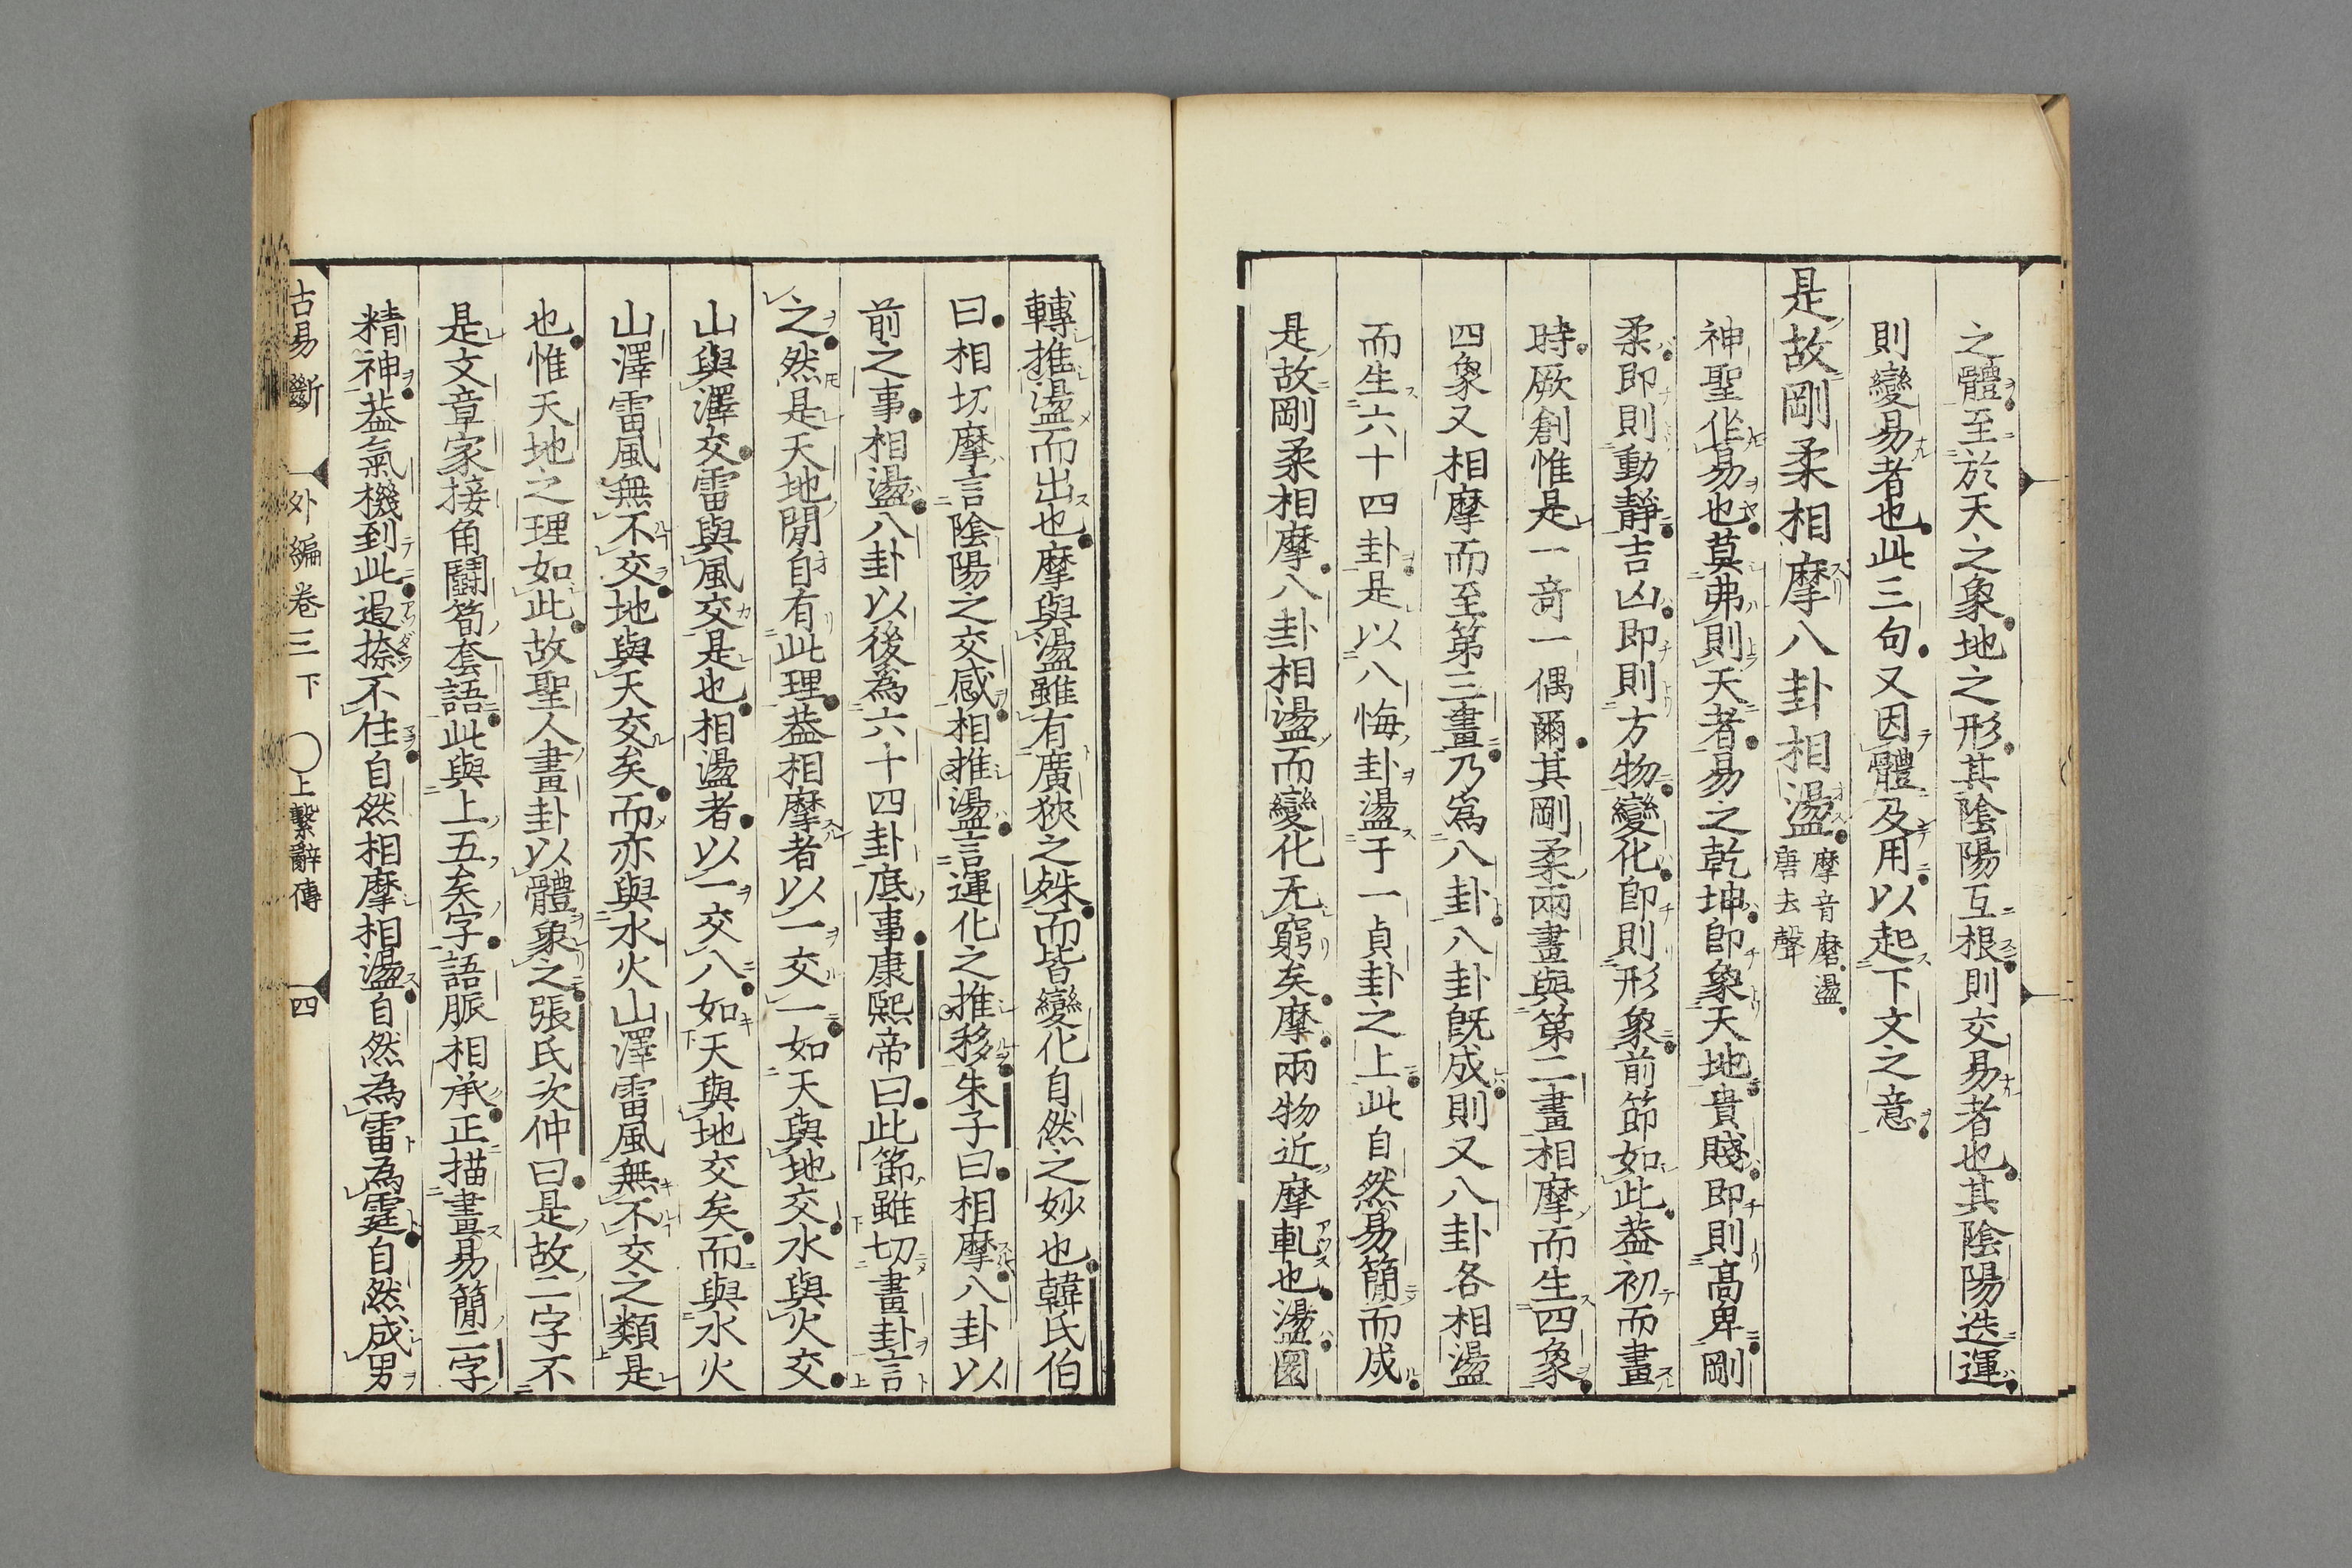 之體至於天之象地之形其陰陽互根則交易者也其陰陽迭運
則變易者也此三句又因體及用以起下文之意
是故剛柔相摩八卦相盪摩音磨盪
唐去聲
神聖作易也莫弗則天者易之乾坤即象天地貴賤即則高卑剛
柔即則動靜吉凶即則方物變化即則形象前節如此葢初而畫
時厥創惟是一奇一偶爾其剛柔兩畫與第二畫相摩而生四象
四象又相摩而至第三畫乃為八卦八卦既成則又八卦各相盪
而生六十四卦是以八悔卦盪于一貞卦之上此自然易簡而成
是故剛柔相摩八卦相盪而變化无窮矣摩兩物近摩軋也盪圜
轉推盪而出也摩與盪雖有廣狹之殊而皆變化自然之妙也韓氏伯
曰相切摩言陰陽之交感相推盪言運化之推移朱子曰相摩八卦以
前之事相盪八卦以後為六十四卦底事康熙帝曰此節雖切畫卦言
之然是天地間自有此理葢相摩者以一交一如天與地交水與火交
山與澤交雷與風交是也相盪者以一交八如天與地交矣而與水火
山澤雷風無不交地與天交矣而亦與水火山澤雷風無不交之類是
也惟天地之理如此故聖人畫卦以體象之張氏次仲曰是故二字不
是文章家接角鬪筍套語此與上五矣字語脈相承正描畫易簡二字
精神葢氣機到此遏捺不住自然相摩相盪自然為雷為霆自然成男
古易斷 外編卷三下 〇上繫辭傳 四